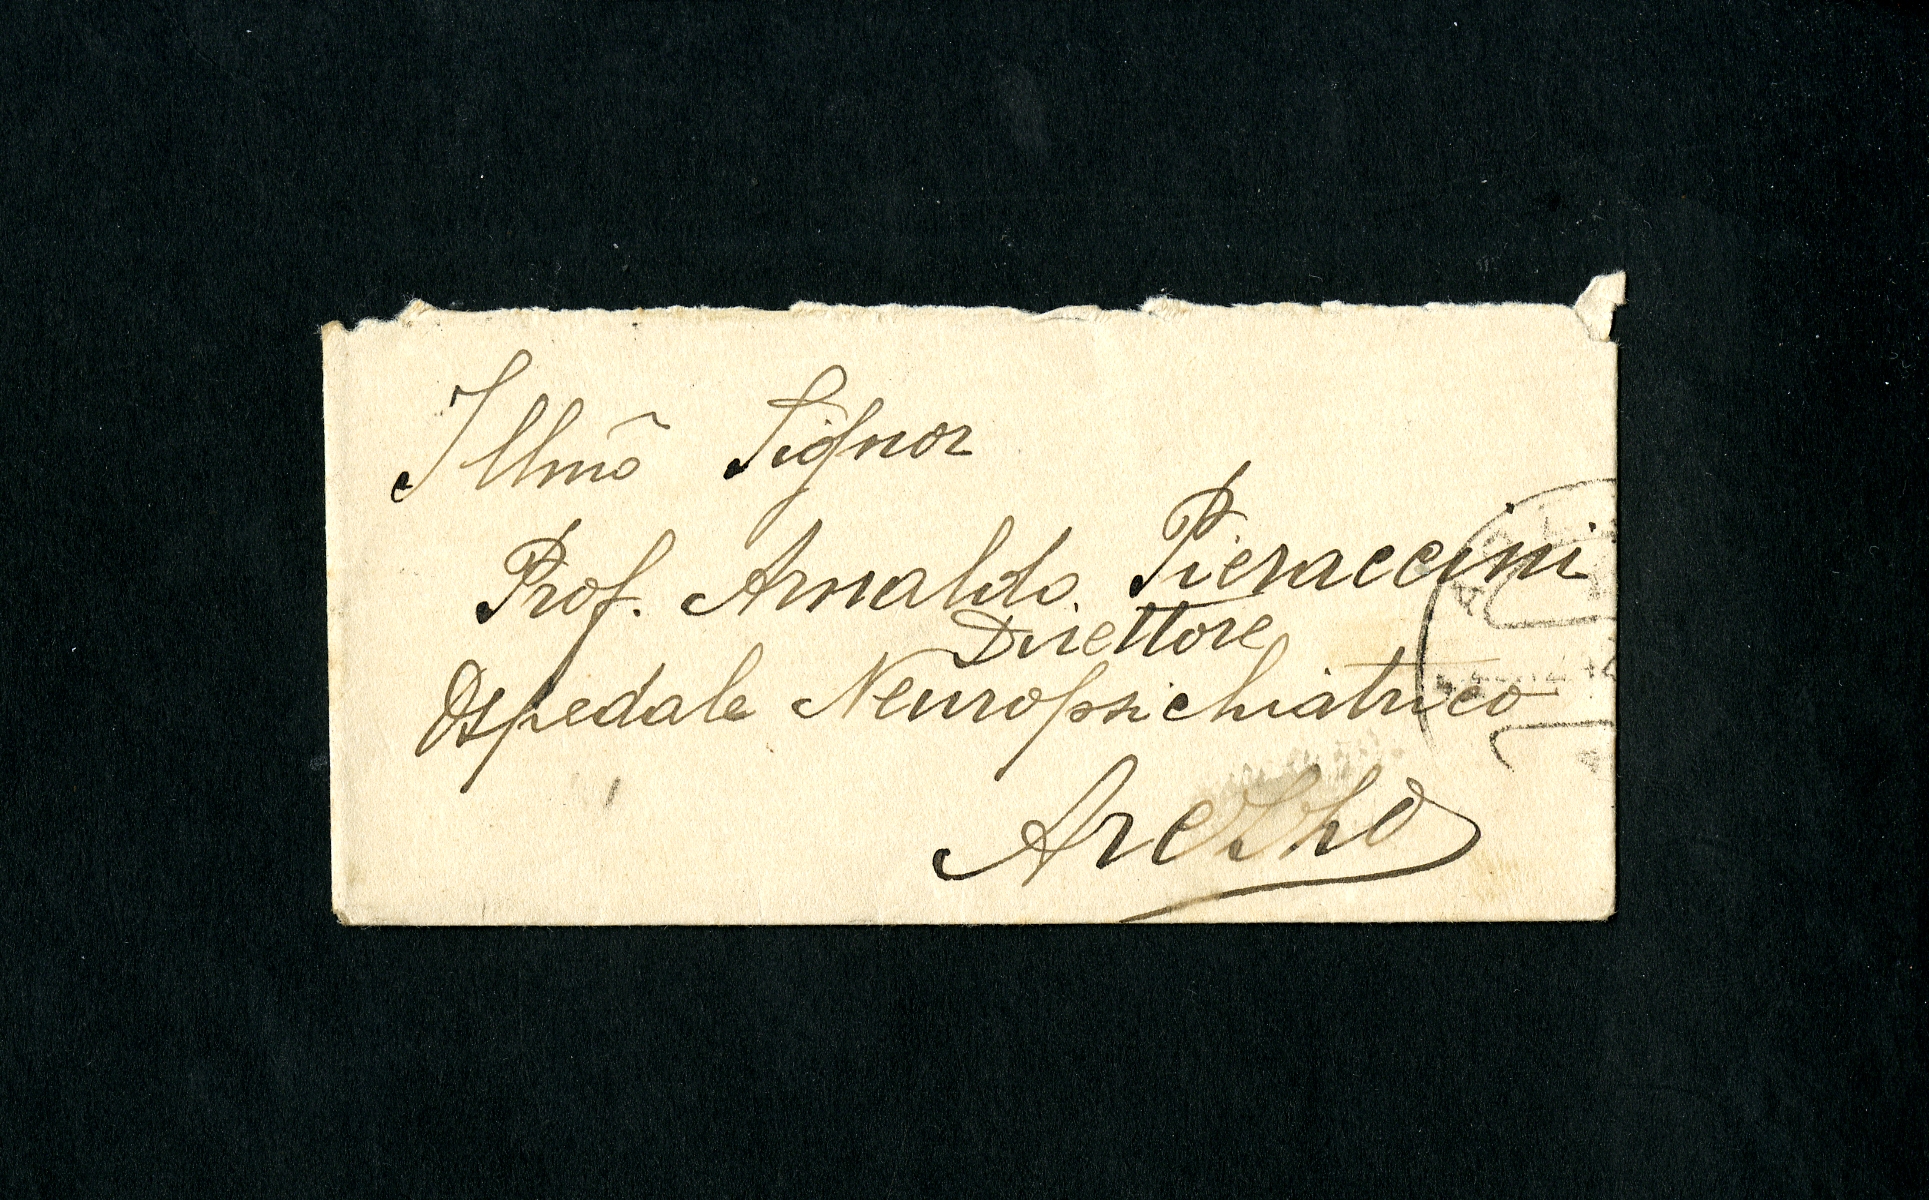 Illmõ Signor
Prof. Arnaldo Pieraccini
Direttore
Ospedale Neuropsichiatrico
Arezzo